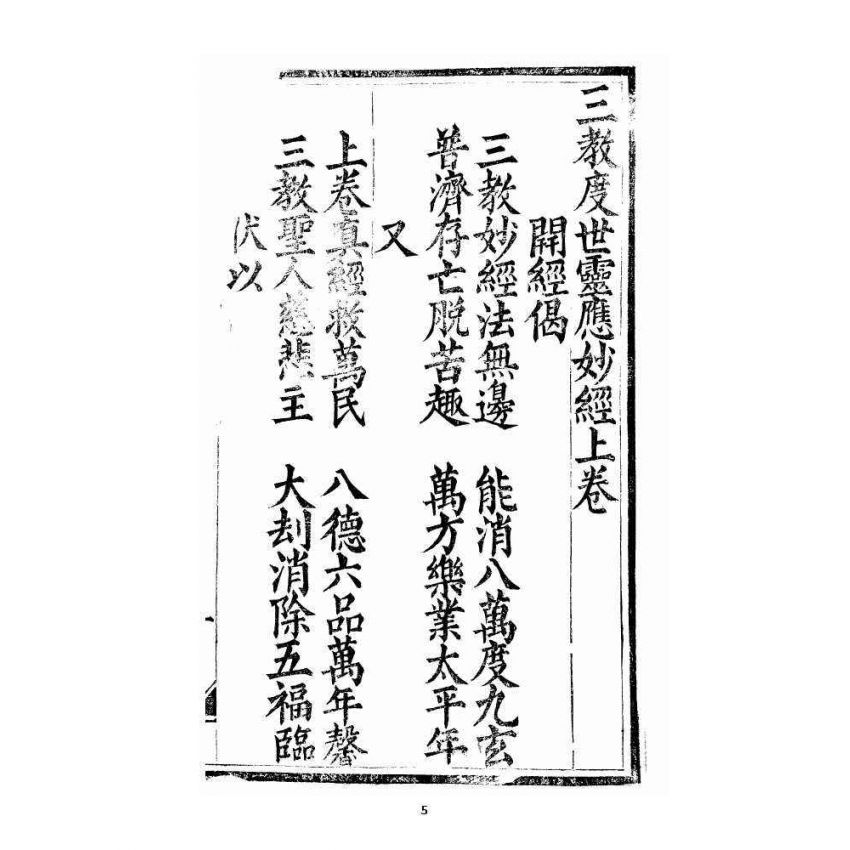 三教度世靈應妙經上卷
開經偈
三教妙經法無邊 能消八萬度九玄
普濟存亡脫苦趣 萬方樂業太平年
又
上卷真經救萬民 八德六品萬年馨
三教聖人慈悲主 大刦消除五福臨
伏以
5